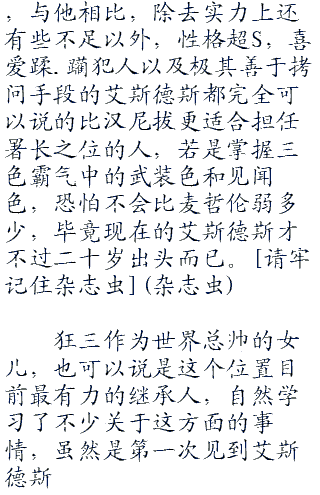 ，与他相比，除去实力上还
有些不足以外，性格超S，喜
爱蹂.躏犯人以及极其善于拷
问手段的艾斯德斯都完全可
以说的比汉尼拔更适合担任
署长之位的人，若是掌握三
色霸气中的武装色和见闻
色，恐怕不会比麦哲伦弱多
少，毕竟现在的艾斯德斯才
不过二十岁出头而已。[请牢
记住杂志虫](杂志虫)
狂三作为世界总帅的女
儿，也可以说是这个位置目
前最有力的继承人，自然学
习了不少关于这方面的事
情，虽然是第一次见到艾斯
德斯